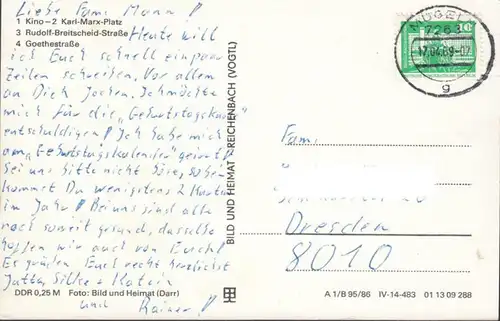 Liebe Fam. Mann!
1 Kino – 2 Karl-Marx-Platz
3 Rudolf-Breitscheid-Straße Heute will
4 Goethestraße
ich Euch schnell ein paar
Zeilen schreiben. Vor allem
an Dich Jochen. Ich möchte
mich für die „Geburtstagskarte"
entschuldigen! Ich habe mich
am „Geburtstagskalender" geirrt!
Sei uns bitte nicht böse, so
kommst Du wenigstens 2 Karten
im Jahr! Bei uns sind alle
noch soweit gesund, dasselbe
hoffen wir auch von Euch!
Es grüßen Euch recht herzlichst
Jutta, Silke + Katrin
und Rainer!
DDR 0,25 M Foto: Bild und Heimat (Darr)
BILD UND HEIMAT REICHENBACH (VOGTL)
MÜGELN
7263
17.04.89-07
g
10
Fam.
Dresden
8010
A 1/B 95/86 IV-14-483 01 13 09 288